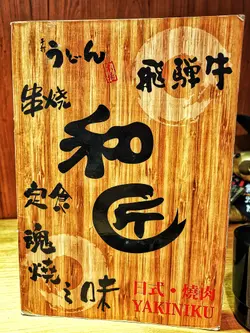 手打
うどん
飛騨牛
串焼
和匠
定食
魂焼之味
日式·燒肉
YAKINIKU